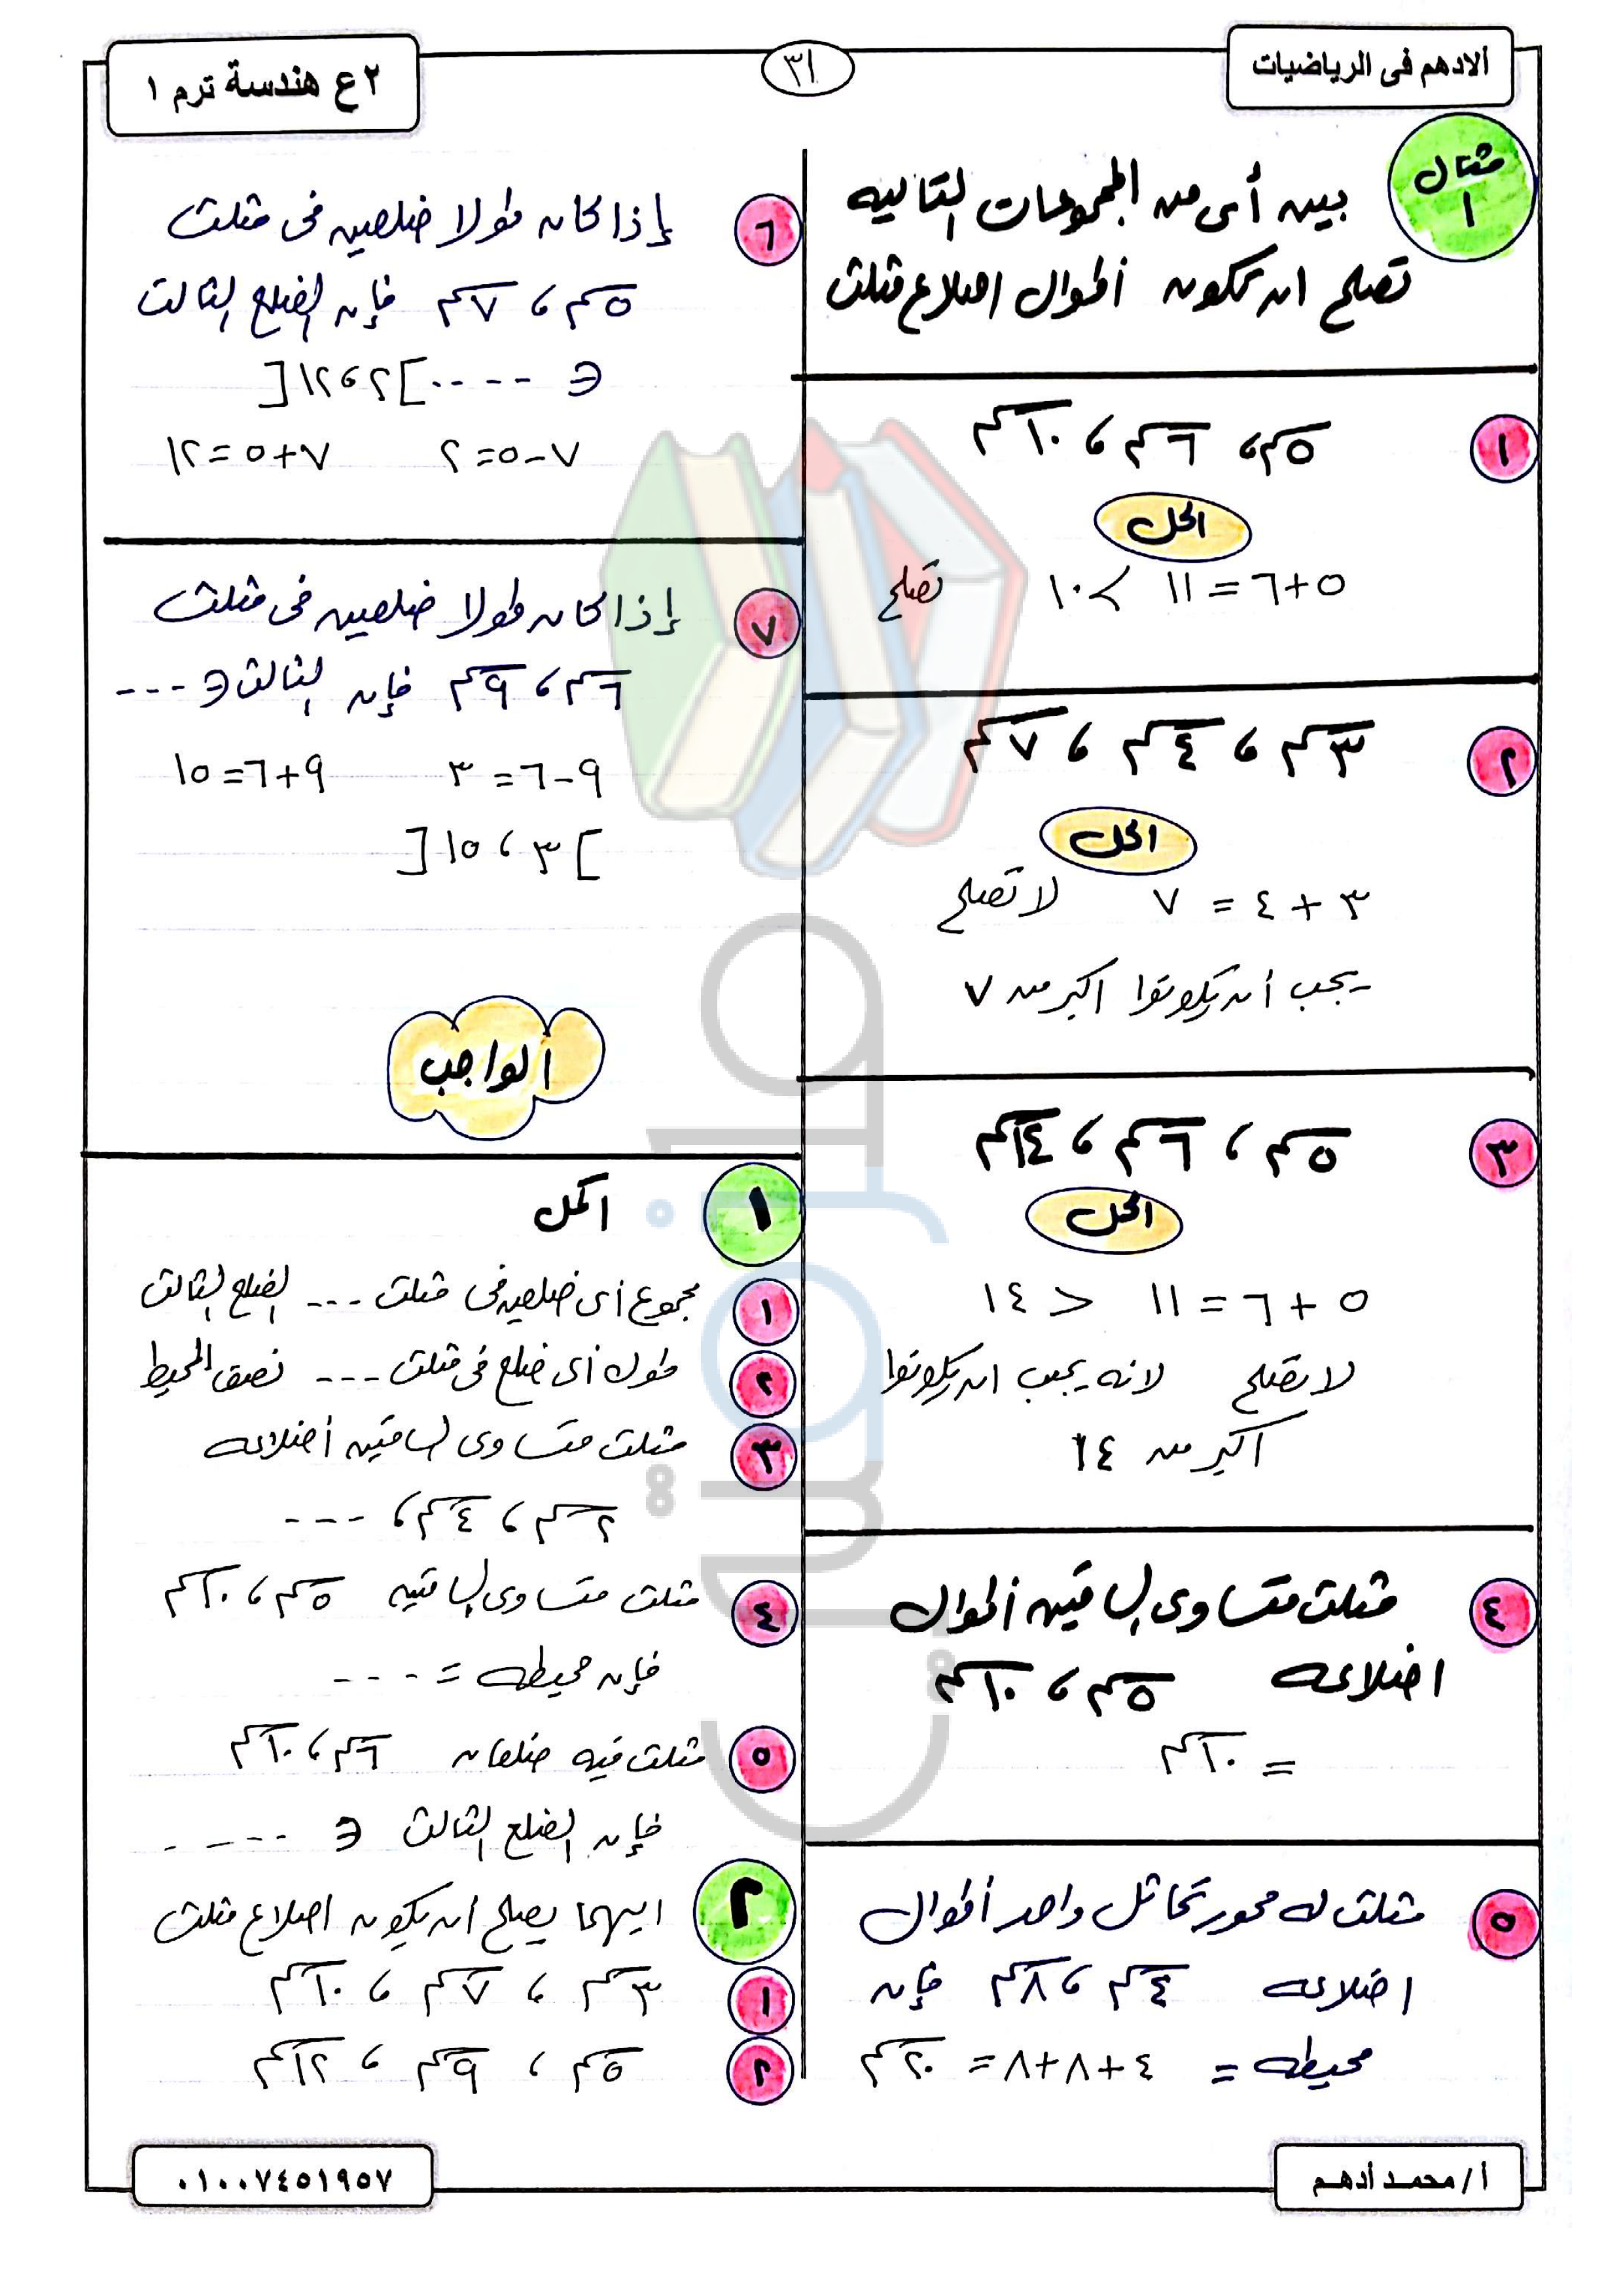 ألادهم فى الرياضيات
٣١
٢ع هندسة ترم ١
مثال ١
بين أى من المجموعات التاليه
تصلح ان تكون أطوال اضلاع مثلث
١ ٥سم ، ٦سم ، ١٠سم
الحل
٥+٦=١١ > ١٠ تصلح
٢ ٣سم ، ٤سم ، ٧سم
الحل
٣+٤=٧ لا تصلح
يجب أن يكونوا اكبر من ٧
٣ ٥سم ، ٦سم ، ١٤سم
الحل
٥+٦=١١ < ١٤
لا تصلح لانه يجب ان يكونوا
اكبر من ١٤
٤ مثلث متساوى الساقين أطوال
اضلاعه ٥سم ، ١٠سم
= ١٠سم
٥ مثلث له محور تماثل واحد أطوال
اضلاعه ٤سم ، ٨سم فإن
محيطه = ٤+٨+٨= ٢٠سم
٦ إذا كان طولا ضلعين فى مثلث
٥سم ، ٧سم فإن الضلع الثالث
∈ ---- ]٢ ، ١٢[
٧-٥=٢ ٧+٥=١٢
٧ إذا كان طولا ضلعين فى مثلث
٦سم ، ٩سم فإن الثالث ∈ ---
٩-٦=٣ ٩+٦=١٥
]٣ ، ١٥[
الواجب
١ اكمل
١ مجموع أى ضلعين فى مثلث --- الضلع الثالث
٢ طول أى ضلع فى مثلث --- نصف المحيط
٣ مثلث متساوى الساقين أضلاعه
٢سم ، ٤سم ، ---
٤ مثلث متساوى الساقين ٥سم ، ١٠سم
فإن محيطه = ---
٥ مثلث فيه ضلعان ٦سم ، ١٠سم
فإن الضلع الثالث ∈ -----
٢ ايهما يصلح أن يكون اضلاع مثلث
١ ٣سم ، ٧سم ، ١٠سم
٢ ٥سم ، ٩سم ، ١٢سم
أ/ محمد أدهم
٠١٠٠٧٤٥١٩٥٧